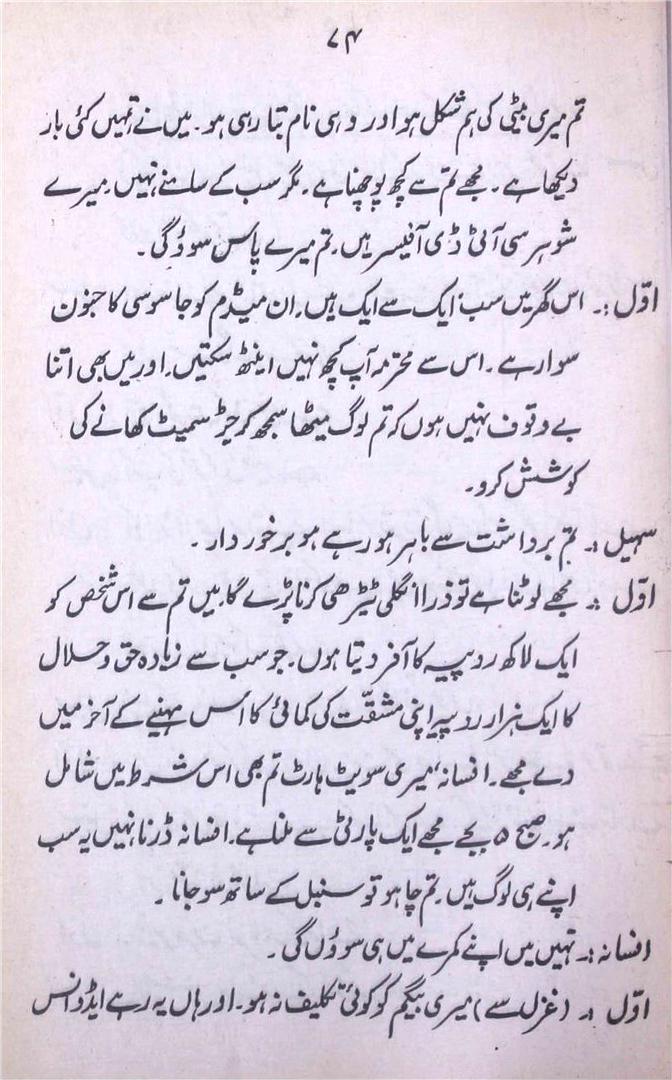 ۷۴
تم میری بیٹی کی ہم شکل ہو اور وہی نام بتا رہی ہو۔ میں نے تمہیں کئی بار
دیکھا ہے۔ مجھے تم سے کچھ پوچھنا ہے۔ مگر سب کے سامنے نہیں۔ میرے
شوہر سی آئی ڈی آفیسر ہیں۔ تم میرے پاس سوؤگی۔
اوّل :۔ اس گھر میں سب ایک سے ایک ہیں۔ ان میڈم کو جاسوسی کا جنون
سوار ہے۔ اس سے محترمہ آپ کچھ نہیں اینٹھ سکتیں۔ اور میں بھی اتنا
بے وقوف نہیں ہوں کہ تم لوگ میٹھا سمجھ کر جڑ سمیٹ کھانے کی
کوشش کرو۔
سہیل :۔ تم برداشت سے باہر ہو رہے ہو برخوردار۔
اوّل :۔ مجھے لوٹنا ہے تو ذرا انگلی ٹیڑھی کرنا پڑے گا۔ میں تم سے اس شخص کو
ایک لاکھ روپیہ کا آفر دیتا ہوں۔ جو سب سے زیادہ حق و حلال
کا ایک ہزار روپیہ اپنی مشقّت کی کمائی کا اس مہینے کے آخر میں
دے مجھے۔ افسانہ، میری سویٹ ہارٹ تم بھی اس شرط میں شامل
ہو۔ صبح ۵ بجے مجھے ایک پارٹی سے ملنا ہے۔ افسانہ ڈرنا نہیں یہ سب
اپنے ہی لوگ ہیں۔ تم چاہو تو سنبل کے ساتھ سو جانا۔
افسانہ :۔ نہیں میں اپنے کمرے میں ہی سوؤں گی۔
اوّل :۔ (غزل سے) میری بیگم کو کوئی تکلیف نہ ہو۔ اور ہاں یہ رہے ایڈوانس